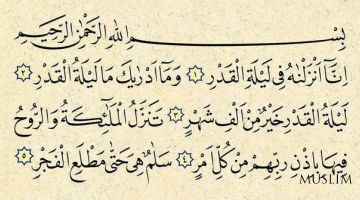 بِسْمِ اللهِ الرَّحْمٰنِ الرَّحِيْمِ
اِنَّآ اَنْزَلْنٰهُ فِيْ لَيْلَةِ الْقَدْرِ ۝١ وَمَآ اَدْرٰىكَ مَا لَيْلَةُ الْقَدْرِ ۝٢
لَيْلَةُ الْقَدْرِ خَيْرٌ مِّنْ اَلْفِ شَهْرٍ ۝٣ تَنَزَّلُ الْمَلٰٓئِكَةُ وَالرُّوْحُ
فِيْهَا بِاِذْنِ رَبِّهِمْ مِّنْ كُلِّ اَمْرٍ ۝٤ سَلٰمٌ هِيَ حَتّٰى مَطْلَعِ الْفَجْرِ ۝٥
MUSLIM